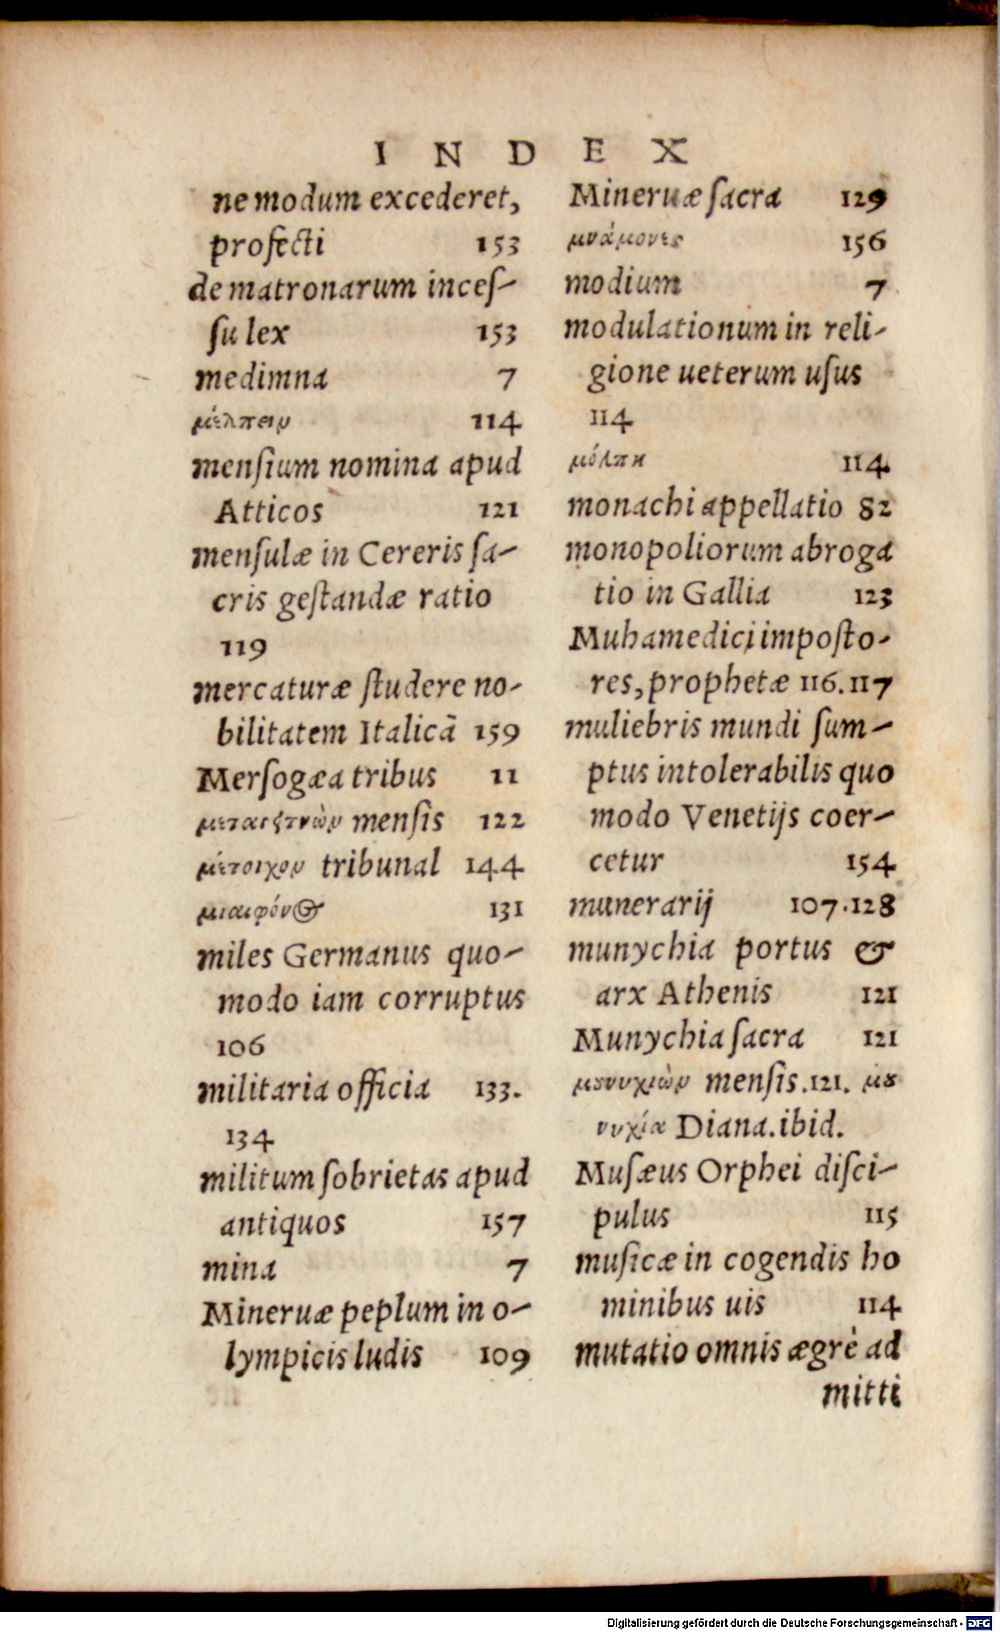 INDEX
ne modum excederet,
profecti 153
de matronarum inceſ-
ſu lex 153
medimna 7
μέλπειν 114
menſium nomina apud
Atticos 121
menſulæ in Cereris ſa-
cris geſtandæ ratio
119
mercaturæ ſtudere no-
bilitatem Italicā 159
Merſogæa tribus 11
mensis 122
μέτοιχον tribunal 144
131
miles Germanus quo-
modo iam corruptus
106
militaria officia 133.
134
militum ſobrietas apud
antiquos 157
mina 7
Mineruæ peplum in o-
lympicis ludis 109
Mineruæ ſacra 129
μνάμονες 156
modium 7
modulationum in reli-
gione ueterum uſus
114
μόλπη 114
monachi appellatio 82
monopoliorum abroga
tio in Gallia 123
Muhamedici impoſto-
res, prophetæ 116.117
muliebris mundi ſum-
ptus intolerabilis quo
modo Venetijs coer-
cetur 154
munerarij 107.128
munychia portus &
arx Athenis 121
Munychia ſacra 121
μȣνυχιὼν menſis.121. μȣ
νυχία Diana.ibid.
Muſæus Orphei diſci-
pulus 115
muſicæ in cogendis ho
minibus uis 114
mutatio omnis ægrè ad
mitti
Digitalisierung gefördert durch die Deutsche Forschungsgemeinschaft - DFG